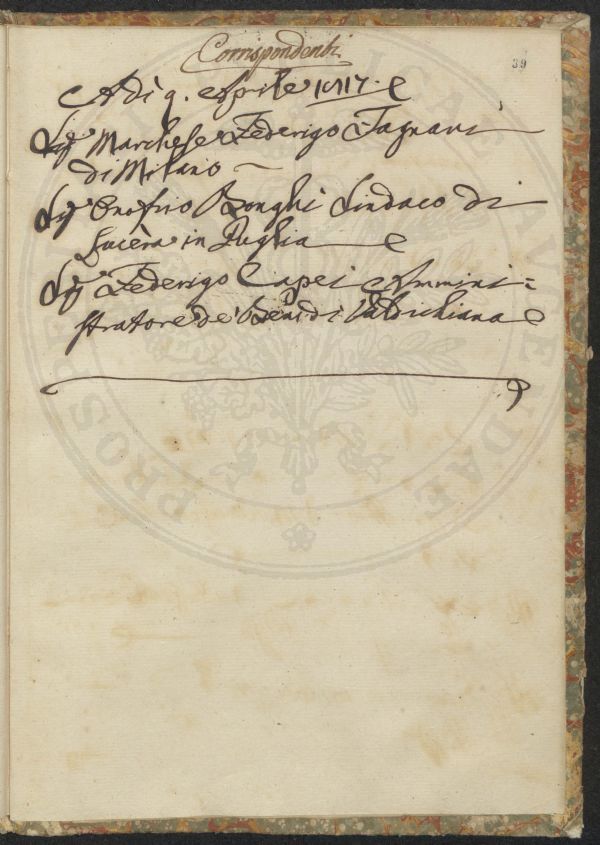 Corrispondenti
39
A dì 9. Aprile 1817.
Sig.r Marchese Federigo Fagnani
di Milano
Sig.r Onofrio Bonghi Sindaco di
Lucèra in Puglia
Sig.r Federigo Capei Ammini=
stratore de' Beni di Valdichiana
PROSPERITATI PUBLICAE AUGENDAE